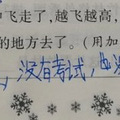 中飞走了，越飞越高，
的地方去了。（用加
，没有考试，也没